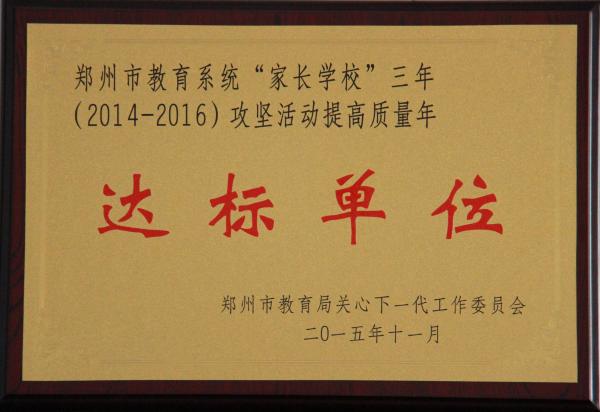 郑州市教育系统“家长学校”三年
(2014-2016)攻坚活动提高质量年
达标单位
郑州市教育局关心下一代工作委员会
二〇一五年十一月